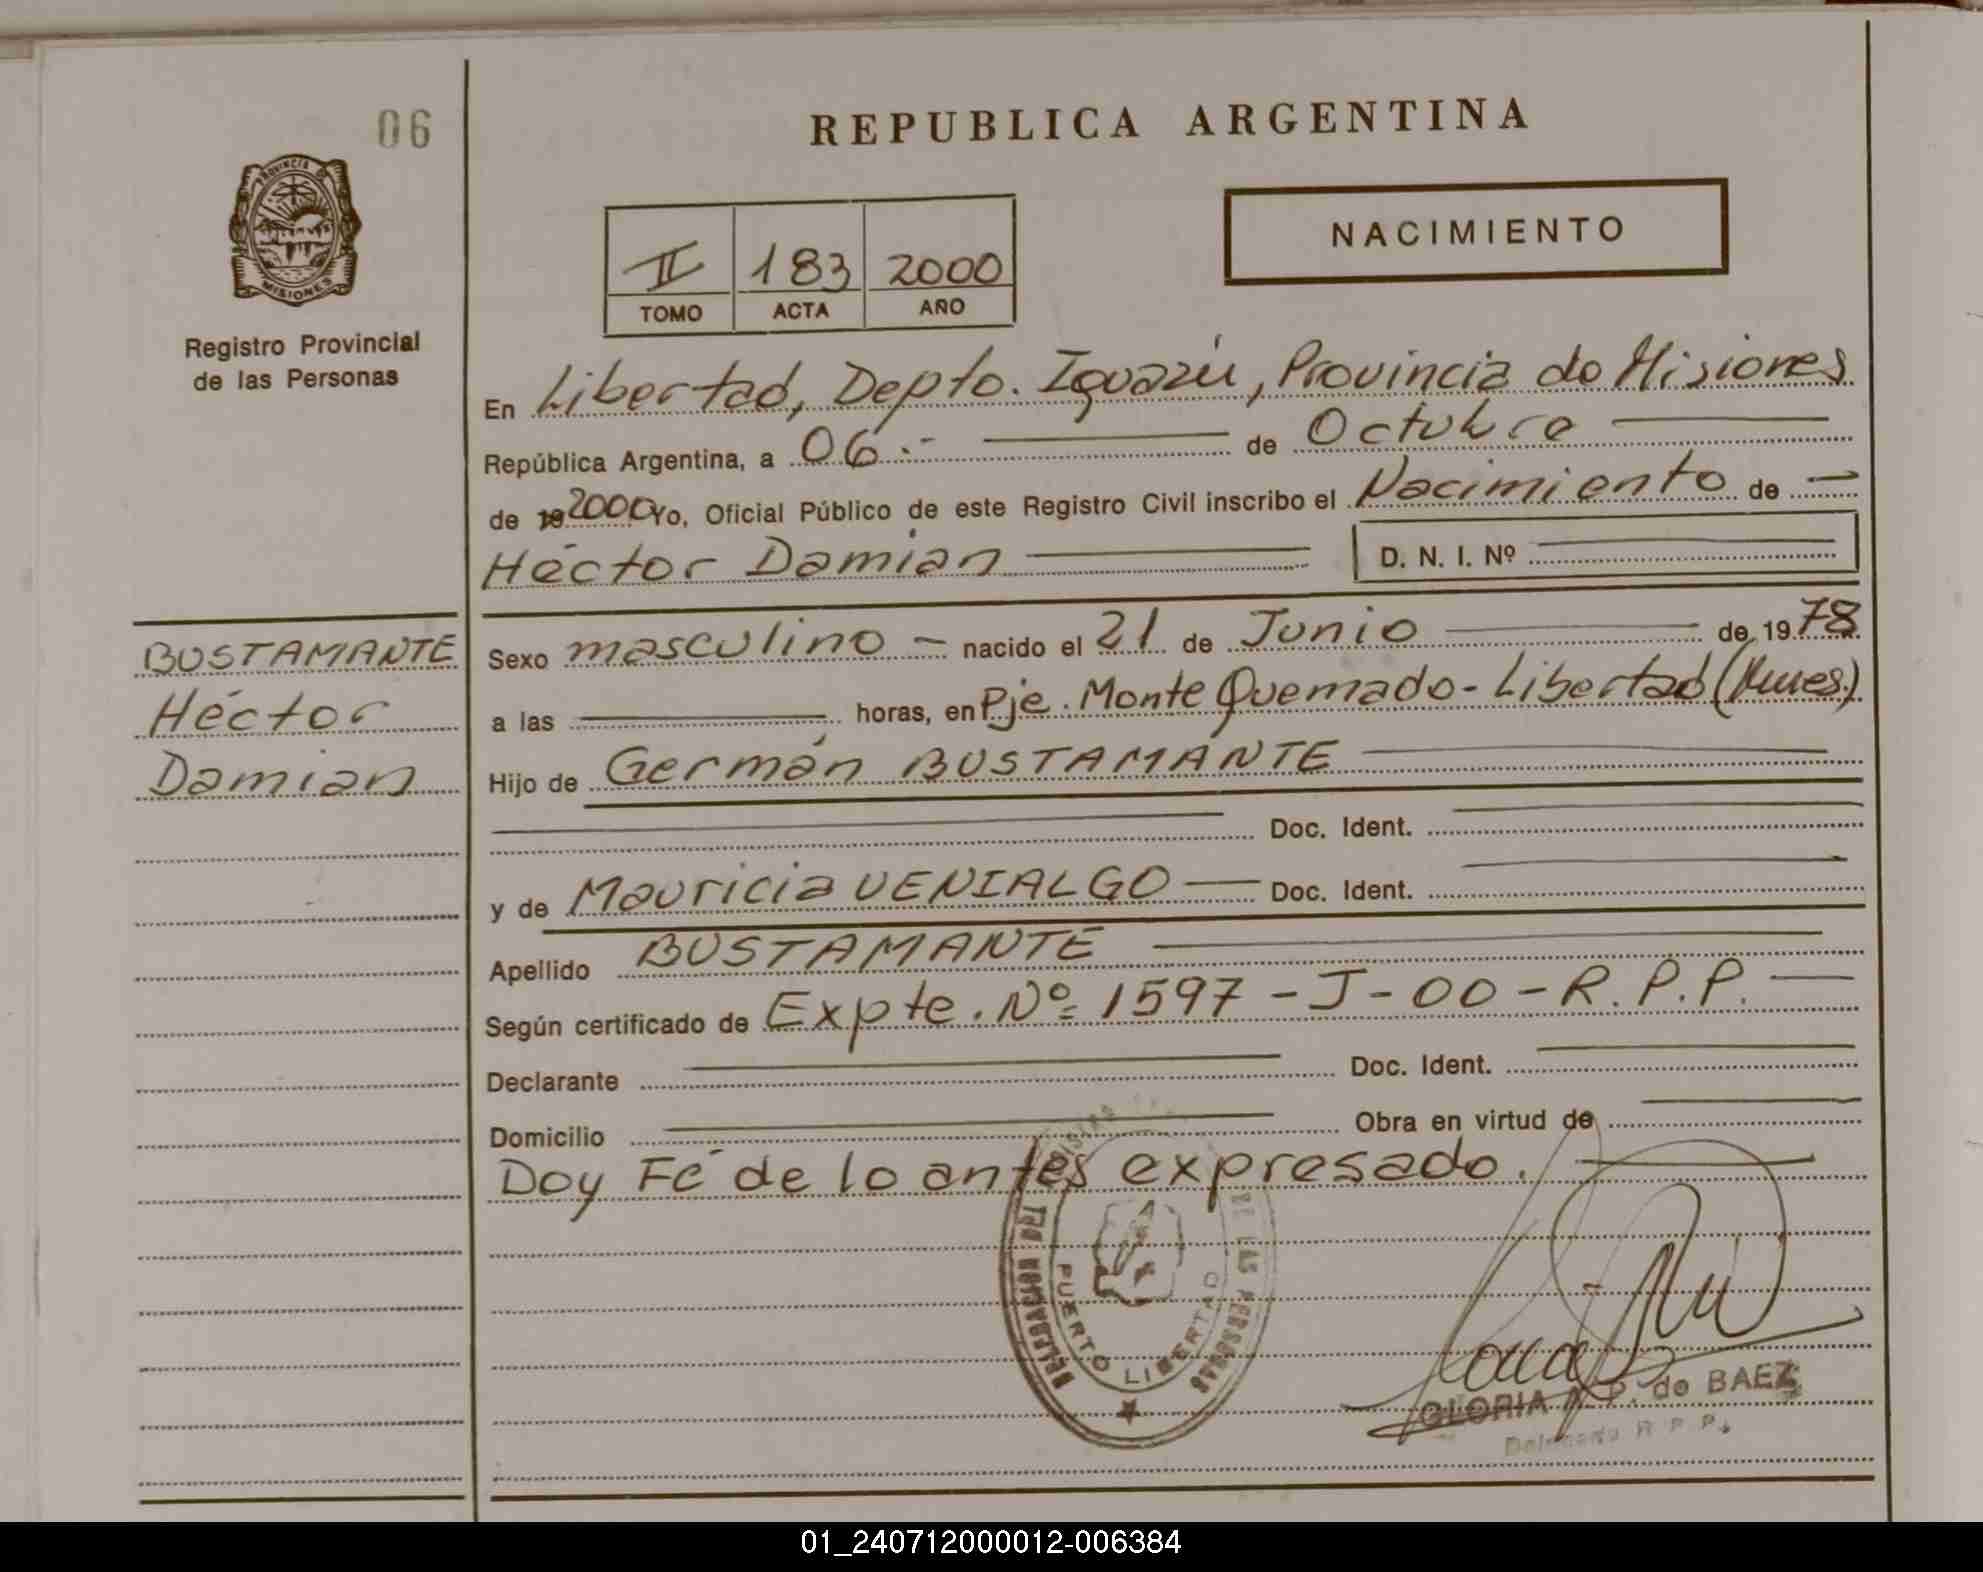 06
REPUBLICA ARGENTINA
PROVINCIA
MISIONES
Registro Provincial
de las Personas
II 183 2000
TOMO ACTA AÑO
NACIMIENTO
En Libertad, Depto. Iguazú, Provincia de Misiones
República Argentina, a 06.- de Octubre
de 19 2000 Yo, Oficial Público de este Registro Civil inscribo el Nacimiento de
Héctor Damian D. N. I. Nº
BUSTAMANTE
Héctor
Damian
Sexo masculino nacido el 21 de Junio de 1978
a las horas, en Pje. Monte Quemado - Libertad (Mnes.)
Hijo de Germán BUSTAMANTE
Doc. Ident.
y de Mauricia VENIALGO Doc. Ident.
Apellido BUSTAMANTE
Según certificado de Expte. Nº 1597 - J - 00 - R.P.P.
Declarante Doc. Ident.
Domicilio Obra en virtud de
Doy Fé de lo antes expresado.
DE LAS PERSONAS
PUERTO LIBERTAD
GLORIA P. de BAEZ
R P P
01_240712000012-006384